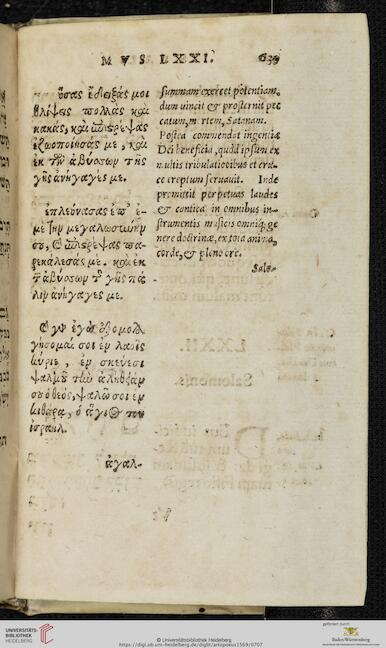 MVS LXXI. 639
ὅσας ἔδειξάς μοι
θλίψεις πολλὰς καὶ
κακὰς, καὶ ἐπιστρέψας
ἐζωοποίησάς με, καὶ
ἐκ τῶν ἀβύσσων τῆς
γῆς ἀνήγαγές με.
ἐπλεόνασας ἐπ' ἐ-
μὲ τὴν μεγαλωσύνην
σου, καὶ ἐπιστρέψας πα-
ρεκάλεσάς με. καὶ ἐκ
τ ἀβύσσων τ γῆς πά-
λιν ἀνήγαγές με.
ἐγὼ ἐξομολο
γήσομαί σοι ἐν λαοῖς
κύριε, ἐν σκεύεσι
ψαλμοῦ τὴν ἀλήθειάν
σου ὁ θεός, ψαλῶ σοι ἐν
κιθάρᾳ, ὁ ἅγιος τοῦ
ἰσραήλ.
ἀγαλ-
summam exercet potentiam,
dum vincit & prosternit pec
catum, mortem, Satanam.
Postea commendat ingentia
Dei beneficia, quòd ipsum ex
multis tribulationibus et cru-
ce ereptum seruauit. Inde
promittit perpetuas laudes
& cantica in omnibus in-
strumentis musicis omniq́; ge
nere doctrinae, ex tota anima,
corde, & pleno ore.
Salo-
UNIVERSITÄTS-
BIBLIOTHEK
HEIDELBERG
© Universitätsbibliothek Heidelberg
https://digi.ub.uni-heidelberg.de/diglit/artopoeus1569/0707
gefördert durch
Baden-Württemberg